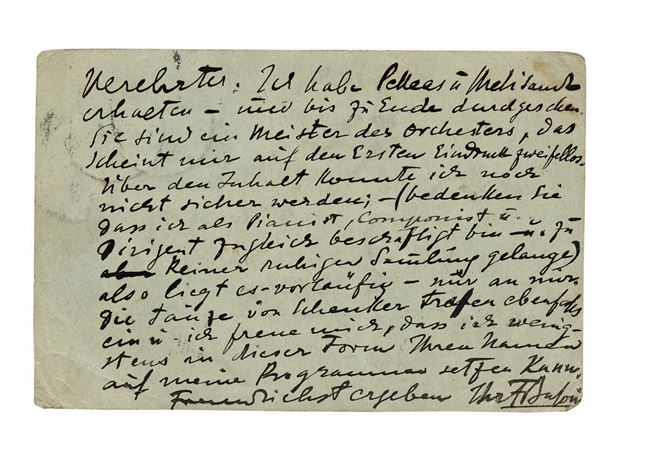 Verehrter: Ich habe Pelleas u Melisande
erhalten – und bis zu Ende durchgesehen
Sie sind ein Meister des Orchesters, das
scheint mir auf den Ersten Eindruck zweifellos.
Über den Inhalt konnte ich noch
nicht sicher werden; – (bedenken Sie
dass ich als Pianist, Componist u.
Dirigent zugleich beschäftigt bin – u. zu
keiner ruhigen Samlung gelange)
also liegt es – vorläufig – nur an mir.
die Tänze von Schenker trafen ebenfalls
ein u. ich freue mich, dass ich wenig-
stens in dieser Form Ihren Namen
auf meine Programme setzen kann.
Freundlichst ergeben Ihr FBusoni